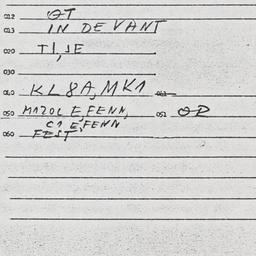 012 OT
013 IN DE VANT
020 TI, JE
030
040 KL8A, MK1 041
050 MAZOL E, FENN, 051 OR
C1 E, FENN
060 FEST